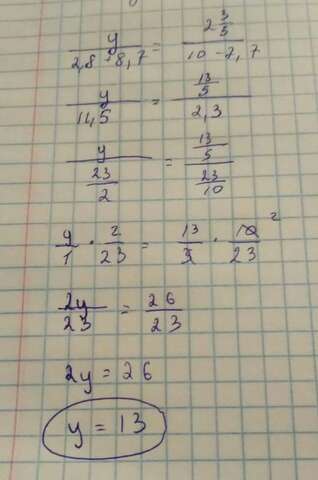 y / 2,8+8,7 = 2 3/5 / 10-7,7
y / 11,5 = 13/5 / 2,3
y / 23/2 = 13/5 / 23/10
y/1 · 2/23 = 13/5 · 10/23 2
2y/23 = 26/23
2y = 26
y = 13